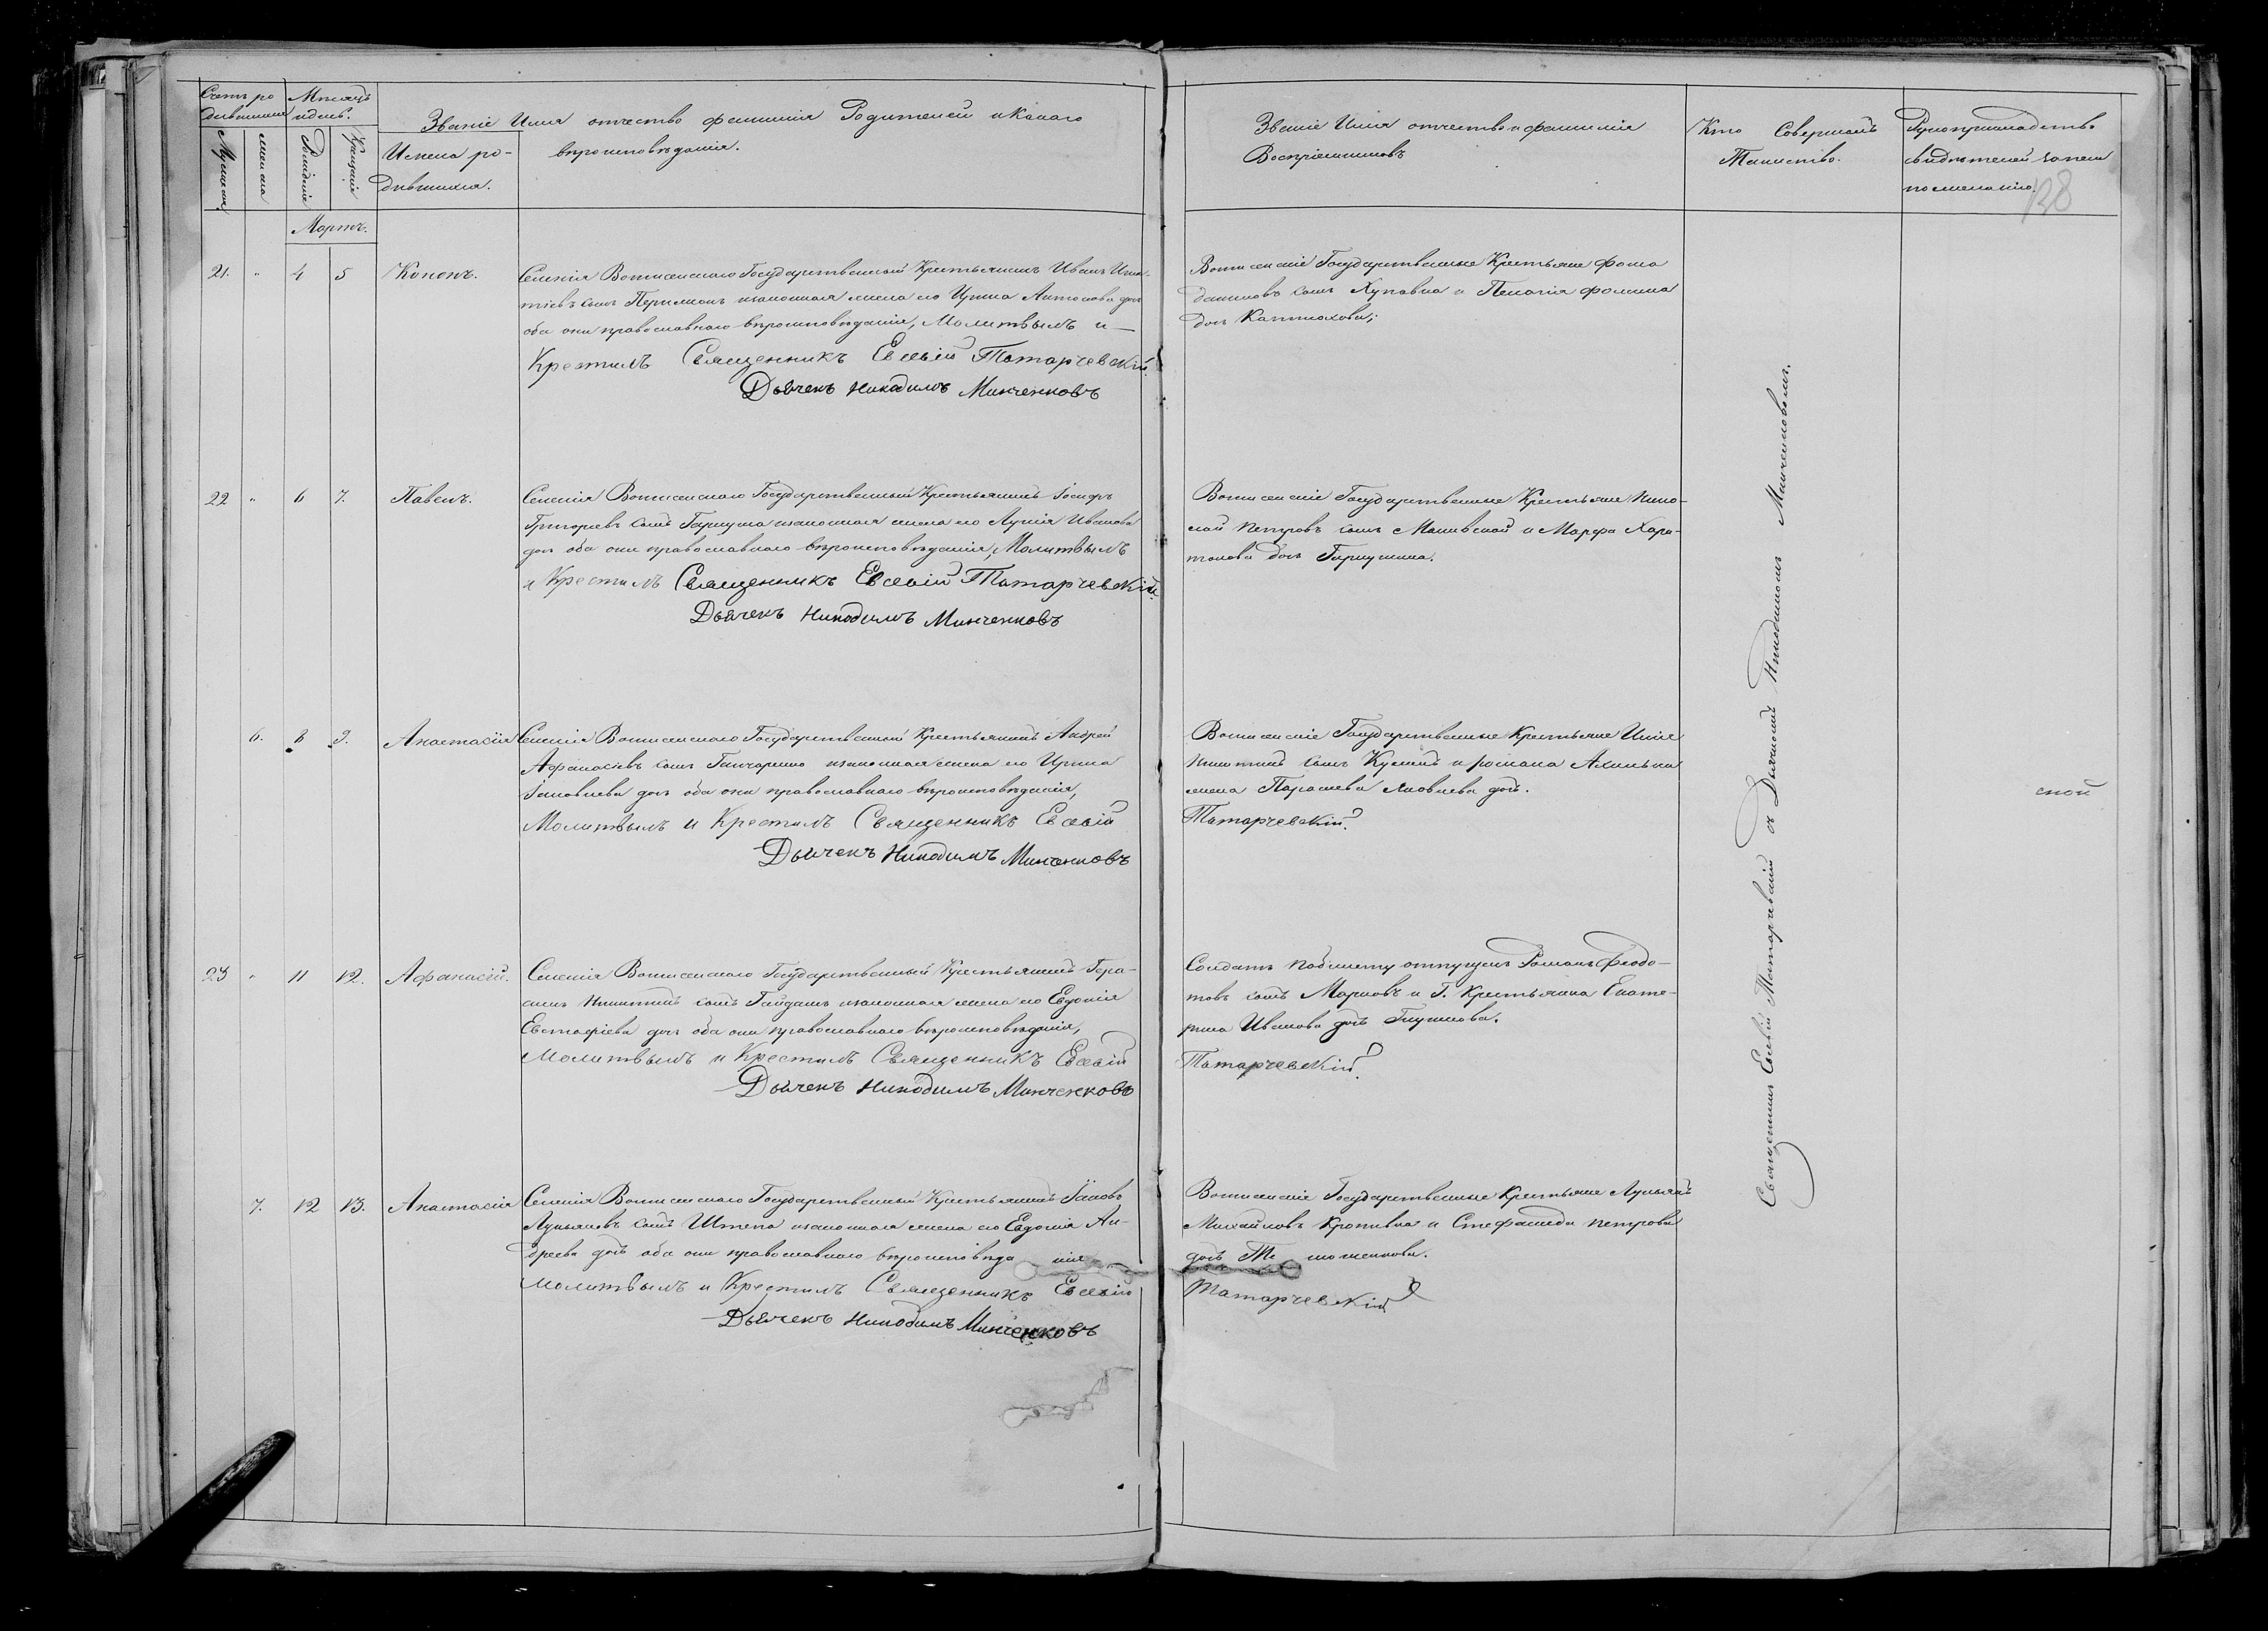 Счетъ ро
дившихся
Мѣсяцъ
и день.
Мужеска
женска
Рожденія
Крещенія
Имена ро-
дившихся.
Званіе Имя отчество фамилія Родителей и какого
вѣроисповѣданія.
Званіе Имя отчество и фамилія
Воспріемниковъ
Кто Совершалъ
Таинство.
Рукоприкладство
свидѣтелей записи
по желанію.
138
Мартъ.
21. " 4 5 Кононъ.
Селенія Государственный Крестьянинъ Иванъ Игна-
тіевъ сынъ законная жена его Ирина Антонова дочь
оба они православнаго вѣроисповѣданія, Молитвылъ и
Крестилъ Священникъ Евсевій Татарчевскій.
Дьячекъ Никодимъ Минченковъ
Государственные Крестьяне Фома
сынъ Хупавка и Пелагія Фомина
дочь
22 " 6 7. Павелъ.
Селенія Государственный Крестьянинъ Іосифъ
Григорьевъ сынъ законная жена его Лукія Иванова
дочь оба они православнаго вѣроисповѣданія, Молитвылъ
и Крестилъ Священникъ Евсевій Татарчевскій.
Дьячекъ Никодимъ Минченковъ
Государственные Крестьяне Нико-
лай Петровъ сынъ и Марфа Хари-
тонова дочь
6. 8 9. Анастасія
Селенія Государственный Крестьянинъ Андрей
Афанасіевъ сынъ Ганчаренко законная жена его Ирина
Іаковлева дочь оба они православнаго вѣроисповѣданія,
Молитвылъ и Крестилъ Священникъ Евсевій
Дьячекъ Никодимъ Минченковъ
Государственные Крестьяне Илія
Никитинъ сынъ и Романа
жена Параскева Яковлева дочь.
Татарчевскій.
ской
23 " 11 12. Афанасій.
Селенія Государственный Крестьянинъ Гера-
симъ Никитинъ сынъ Гайдашъ законная жена его Евдокія
Евстафіева дочь оба они православнаго вѣроисповѣданія,
Молитвылъ и Крестилъ Священникъ Евсевій
Дьячекъ Никодимъ Минченковъ
Солдатъ по билету отпущен Романъ Федо-
товъ сынъ Марковъ и Г. Крестьянка Екате-
рина Иванова дочь Глушкова.
Татарчевскій.
7. 12 13. Анастасія
Селенія Государственный Крестьянинъ Іаковъ
Лукьяновъ сынъ Штепа законная жена его Евдокія Ан-
дреева дочь оба они православнаго вѣроисповѣда нія
Молитвылъ и Крестилъ Священникъ Евсевій
Дьячекъ Никодимъ Минченковъ
Государственные Крестьяне Лукьянъ
Михайловъ Кропивка и Стефанида Петрова
дочь
Татарчевскій
Священникъ Евсевій Татарчевскій съ Дьячкомъ Никодимомъ Минченковымъ.